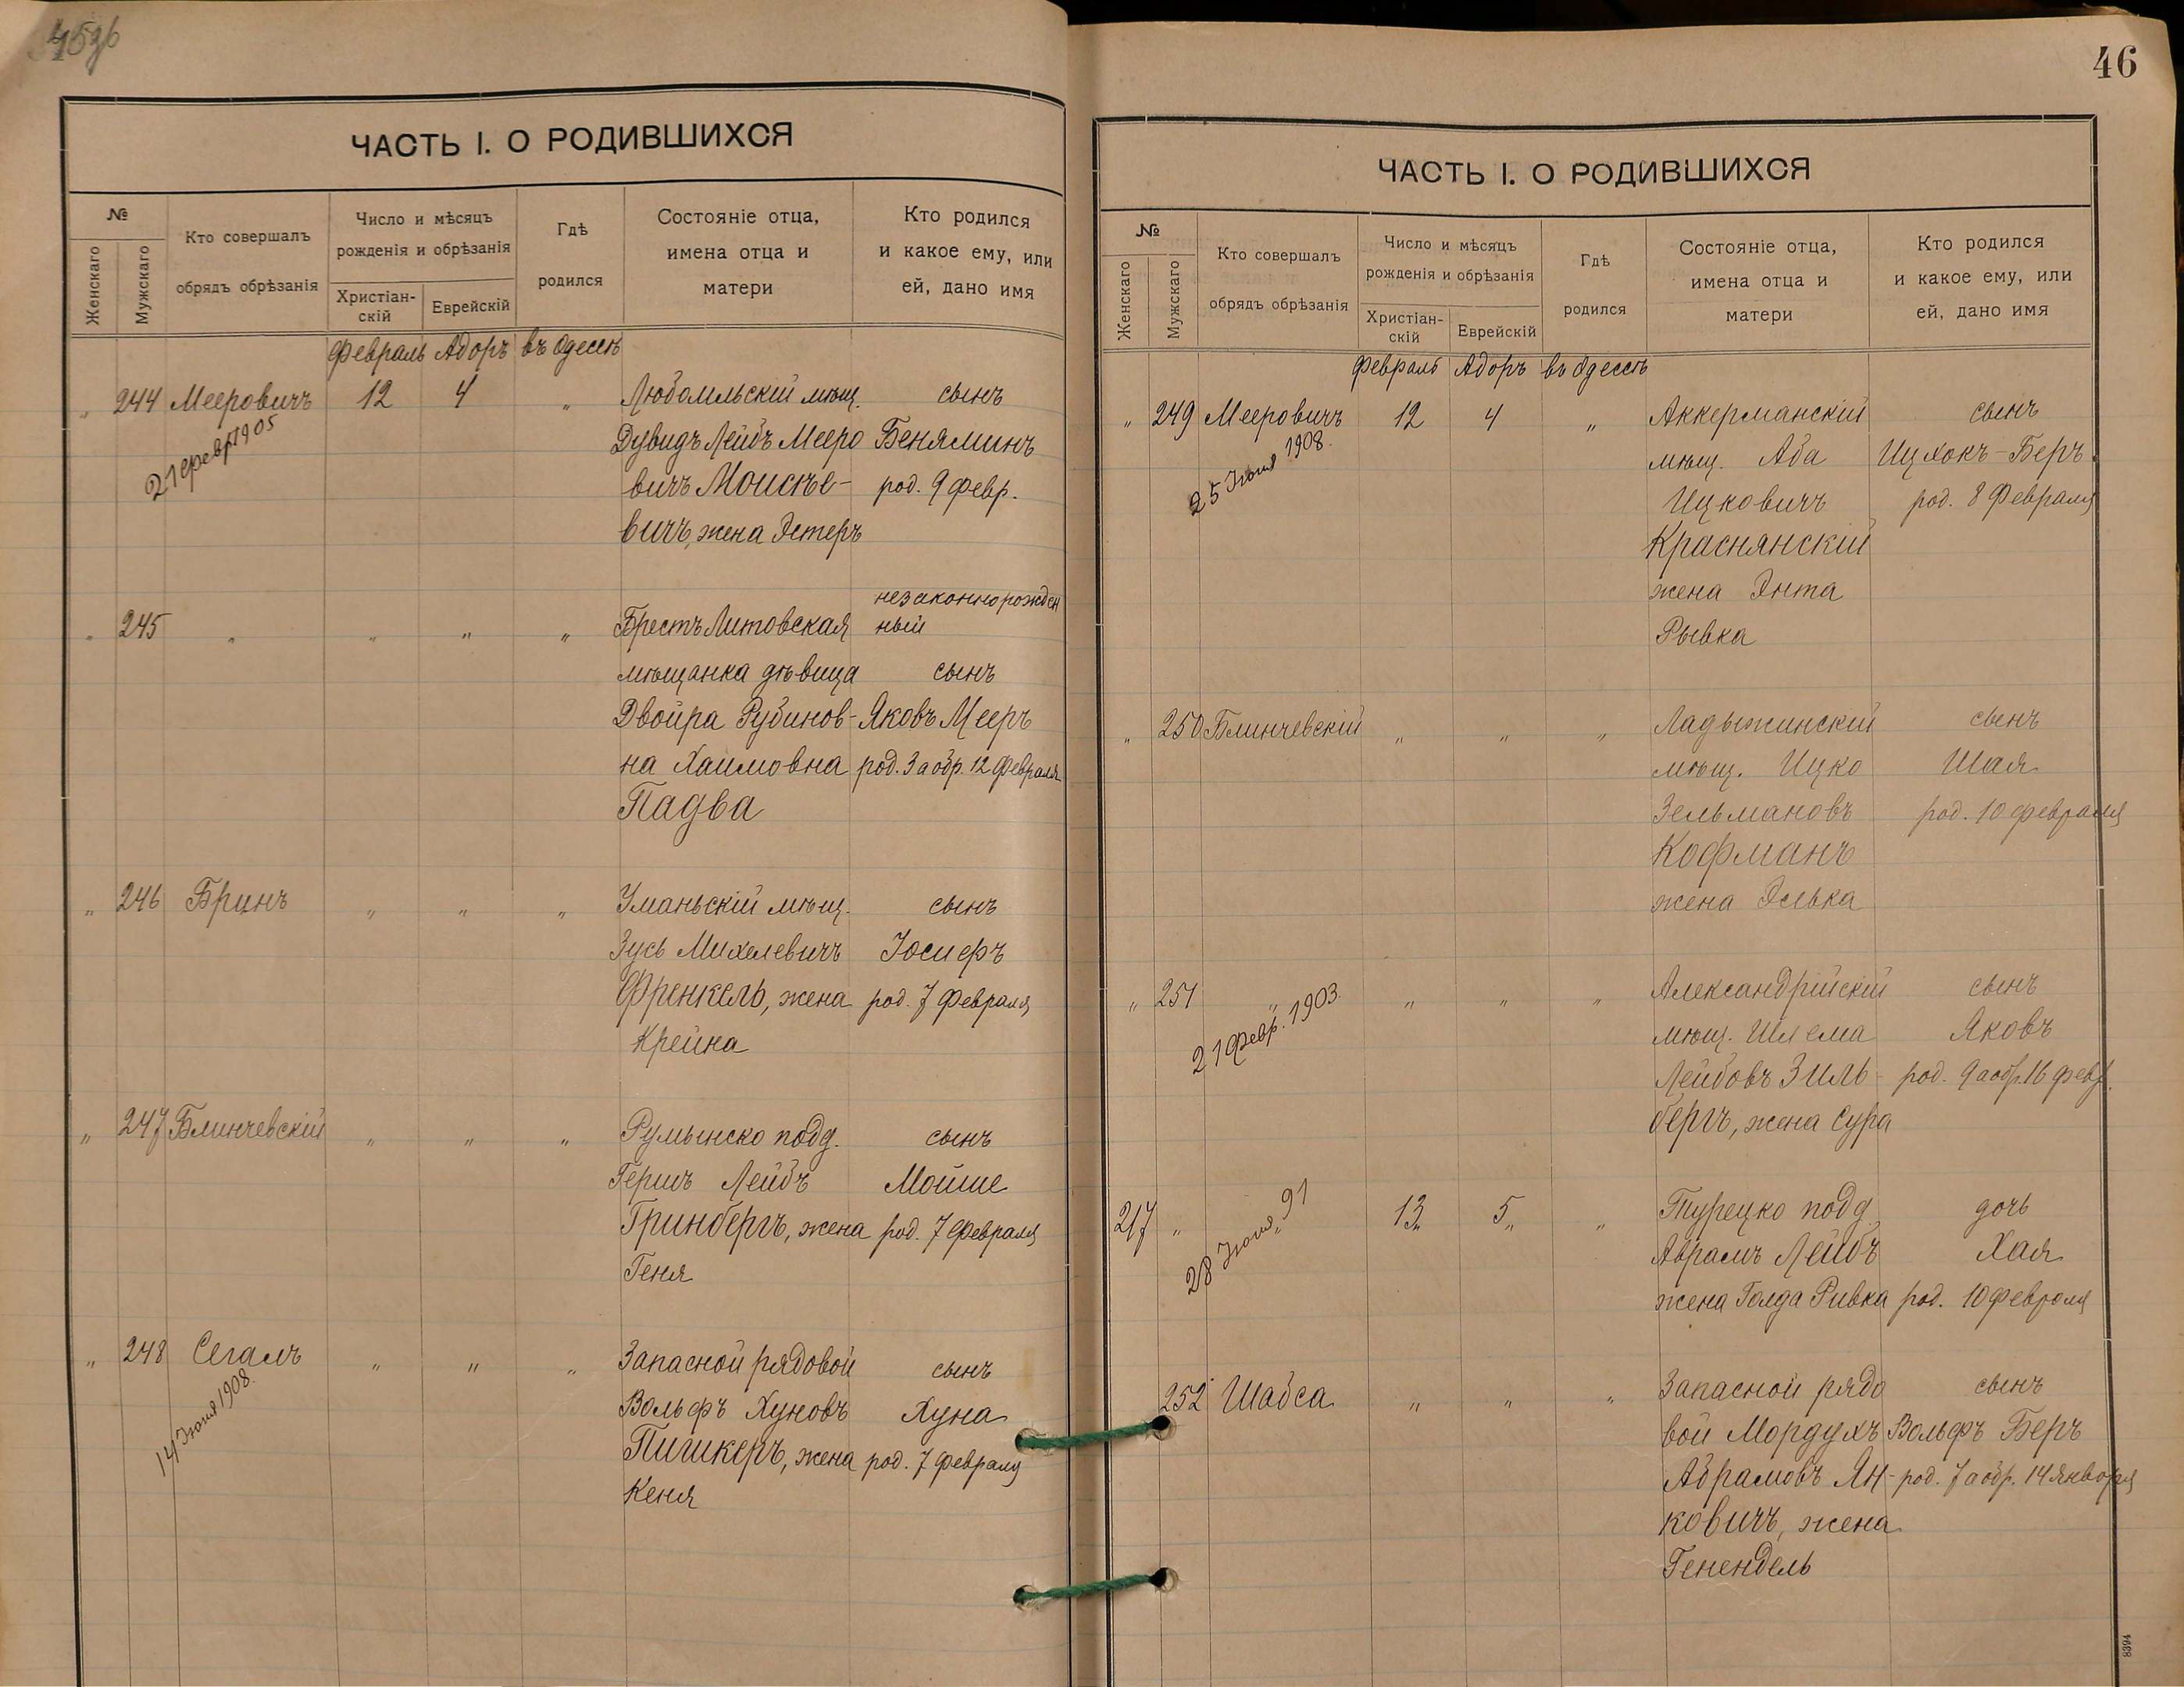 ЧАСТЬ I. О РОДИВШИХСЯ
№
Женскаго
Мужскаго
Кто совершалъ
обрядъ обрѣзанія
Число и мѣсяцъ
рожденія и обрѣзанія
Христіан-
скій
Еврейскій
Гдѣ
родился
Состояніе отца,
имена отца и
матери
Кто родился
и какое ему, или
ей, дано имя
Февраль Адоръ въ Одессѣ
„ 244 Мееровичъ 12 4 „ Любомльскій мѣщ. сынъ
21 февр 1905
Дувидъ Лейбъ Мееро Беняминъ
вичъ Моисѣе- род. 9 февр.
вичъ, жена Эстеръ
незаконнорожден
„ 245 „ „ „ „ Брестъ Литовская ный
мѣщанка дѣвица сынъ
Двойра Рубинов- Яковъ Мееръ
на Хаимовна род. 3 а обр. 12 февраля
Падва
„ 246 Бринъ „ „ „ Уманьскій мѣщ. сынъ
Зусь Михелевичъ Іосифъ
Френкель, жена род. 7 февраля
Крейна
„ 247 Блинчевскій „ „ „ Румынско подд. сынъ
Гершъ Лейбъ Мойше
Гринбергъ, жена род. 7 февраля
Геня
„ 248 Сегалъ „ „ „ Запасной рядовой сынъ
14 Іюня 1908.
Вольфъ Хуновъ Хуна
Пишкеръ, жена род. 7 февраля
Кеня
46
ЧАСТЬ I. О РОДИВШИХСЯ
№
Женскаго
Мужскаго
Кто совершалъ
обрядъ обрѣзанія
Число и мѣсяцъ
рожденія и обрѣзанія
Христіан-
скій
Еврейскій
Гдѣ
родился
Состояніе отца,
имена отца и
матери
Кто родился
и какое ему, или
ей, дано имя
Февраль Адоръ въ Одессѣ
„ 249 Мееровичъ 12 4 „ Аккерманскій сынъ
25 Іюня 1908.
мѣщ. Аба Ицхокъ-Беръ
Ицковичъ род. 8 Февраля
Краснянскій
жена Энта
Рывка
„ 250 Блинчевскій „ „ „ Ладыжинскій сынъ
мѣщ. Ицко Шая
Зельмановъ род. 10 февраля
Кофманъ
жена Элька
„ 251 „ „ „ „ Александрійскій сынъ
21 февр. 1903.
мѣщ. Шлема Яковъ
Лейбовъ Зиль- род. 9 а обр. 16 февр.
бергъ, жена Сура
217 „ 13 „ 5 „ „ Турецко подд. дочь
28 Іюня „ 91
Аврамъ Лейбъ Хая
жена Голда Ривка род. 10 февраля
252 Шабса „ „ „ Запасной рядо сынъ
вой Мордухъ Вольфъ Беръ
Абрамовъ Ян- род. 7 а обр. 14 января
ковичъ, жена
Генендель
8394